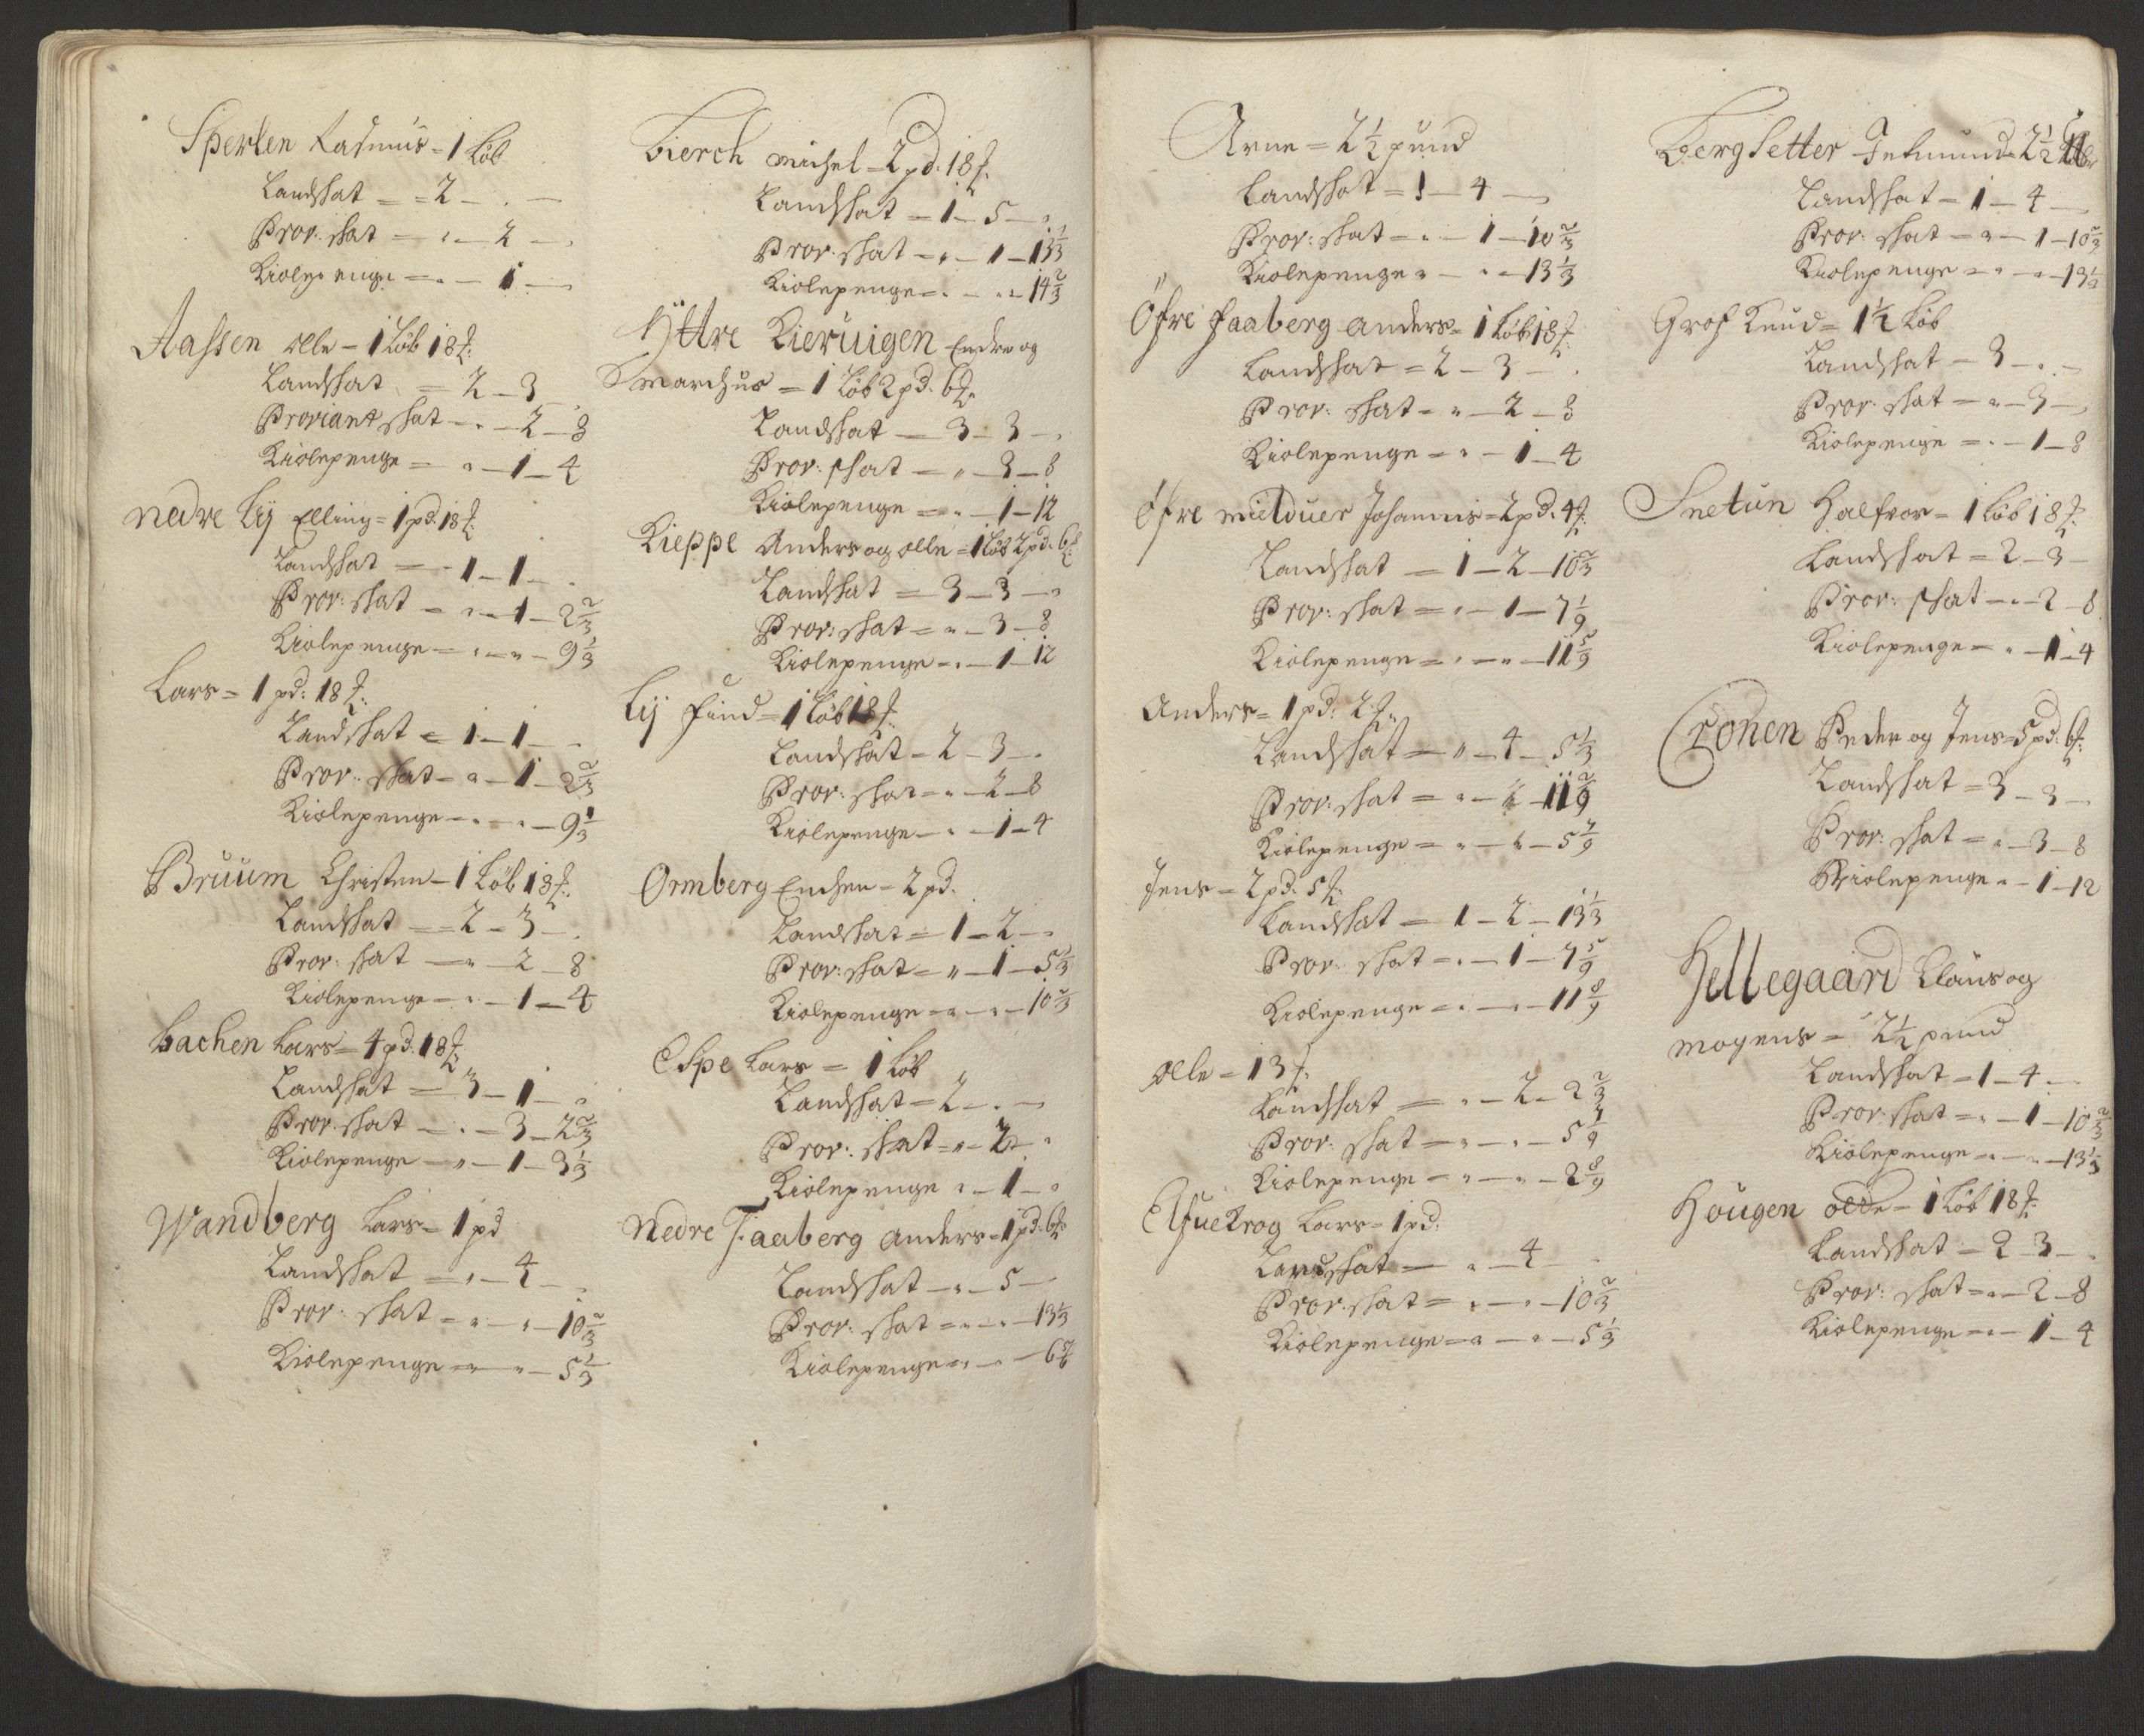 Sperlen Rasmus = 1 Løb
Landskat = = 2 - . -
Prov. skat = " - 2 - "
Kiolepenge = . - 1 - "
Aassen olle - 1 Løb 18 f:
Landskat = 2 - 3 -
Proviant skat - . - 2 - 8
Kiolepenge = " - 1 - 4
nedre Lij Elling = 1 pd. 18 f:
Landskat = - 1 - 1 - .
Prov: skat = " - 1 - 2 2/3
Kiolepenge - " - " - 9 1/3
Lars = 1 pd: 18 f:
Landskat = 1 - 1 - .
Prov: skat - " - 1 - 2 2/3
Kiolepenge - . - " - 9 1/3
Bruum Christen - 1 Løb 18 f:
Landskat = 2 - 3 - .
Prov: skat = " - 2 - 8
Kiolepenge - " - 1 - 4
bachen Lars = 4 pd. 18 f:
Landskat = 3 - 1 - "
Prov. skat - . - 3 - 2 2/3
Kiolepenge - " - 1 - 3 1/3
Wandberg Lars = 1 pd
Landskat - " - 4 - "
Prov: skat = " - " - 10 2/3
Kiolepenge = " - " - 5 1/3
bierch michel - 2 pd. 18 f:
Landskat = 1 - 5 - "
Prov. skat - " - 1 - 13 1/3
Kiolepenge = . - " - 14 2/3
Ÿttre Kieruigen Endre og
marchus = 1 Løb 2 pd. 6 f.
Landskat - 3 - 3 - "
Prov: skat - " - 3 - 8
Kiolepenge = " - 1 - 12
Kieppe Anders og olle = 1 Løb 2 pd. 6 f:
Landskat = 3 - 3 - "
Prov: skat = " - 3 - 8
Kiolepenge - . - 1 - 12
Lij find = 1 Løb 18 f:
Landskat - 2 - 3 - .
Prov: skat - " - 2 - 8
Kiolepenge - " - 1 - 4
Ormberg = 2 pd.
Landskat = 1 - 2 - "
Prov: skat = " - 1 - 5 1/3
Kiolepenge = " - " - 10 2/3
Espe Lars = 1 Løb
Landskat = 2 - . -
Prov: skat = " - 2 - "
Kiolepenge " - 1 - "
Nedre Faaberg anders = 1 pd. 6 f:
Landskat - " - 5 -
Prov. skat = " - " - 13 1/3
Kiolepenge = " - " - 6 2/3
Arne = 2 1/2 pund
Landskat = 1 - 4 - "
Prov: skat - " - 1 - 10 2/3
Kiolepenge " - " - 13 1/3
Öfre faaberg anders = 1 Løb 18 f:
Landskat = 2 - 3 - .
Prov: skat - " - 2 - 8
Kiolepenge - " - 1 - 4
öfre mielduer Johannis = 2 pd. 4 f:
Landskat = 1 - 2 - 10 2/3
Prov: skat = " - 1 - 7 1/9
Kiolepenge = " - " - 11 5/9
Anders = 1 pd: 2 f.
Landskat = " - 4 - 5 1/3
Prov: skat = " - " - 11 5/9
Kiolepenge = " - " - 5 7/9
Jens = 2 pd. 5 f:
Landskat = 1 - 2 - 13 1/3
Prov: skat - . - 1 - 7 5/9
Kiolepenge = . - " - 11 8/9
olle = 13 f.
Landskat = " - 2 - 2 2/3
Prov: skat = " - " - 5 7/9
Kiolepenge = " - " - 2 8/9
Elfuekrog Lars = 1 pd:
Landskat = " - 4 - .
Prov. skat = " - " - 10 2/3
Kiolepenge = " - " - 5 1/3
Bergsetter Jetmund = 2 1/2
Landskat = 1 - 4 - "
Prov: skat - " - 1 - 10 2/3
Kiolepenge = " - " - 13 1/3
Grof Knud = 1 1/2 Løb
Landskat - 3 - . -
Prov. skat = " - 3 - "
Kiolepenge = . - 1 - 8
Snetun halfvor = 1 Løb 18 f:
Landskat = 2 - 3 -
Prov: skat - " - 2 - 8
Kiolepenge = " - 1 - 4
Cronen Peder og Jens = 5 pd: 6 f:
Landskat = 3 - 3 -
Prov: skat = " - 3 - 8
Kiolepenge " - 1 - 12
Hellegaard Claus og
mogens = 2 1/2 pund
Landskat = 1 - 4 - .
Prov: skat = " - 1 - 10 2/3
Kiolepenge - " - " - 13 1/3
Hougen olle = 1 Løb 18 f:
Landskat = 2 - 3 - .
Prov: skat = " - 2 - 8
Kiolepenge = " - 1 - 4